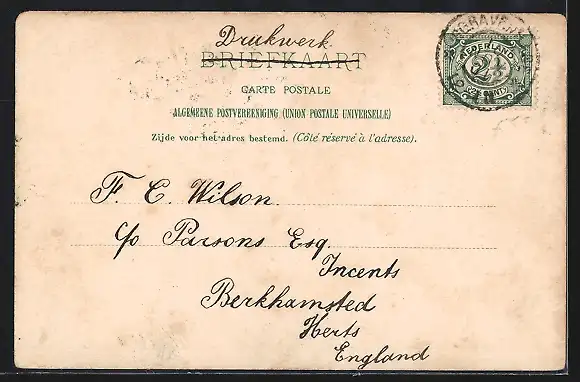 Drukwerk
BRIEFKAART
CARTE POSTALE
ALGEMEENE POSTVEREENIGING (UNION POSTALE UNIVERSELLE)
Zijde voor het adres bestemd. (Côté réservé à l'adresse).
NEDERLAND
2½
CENT
F. C. Wilson
c/o Parsons Esq.
Incents
Berkhamsted
Herts
England